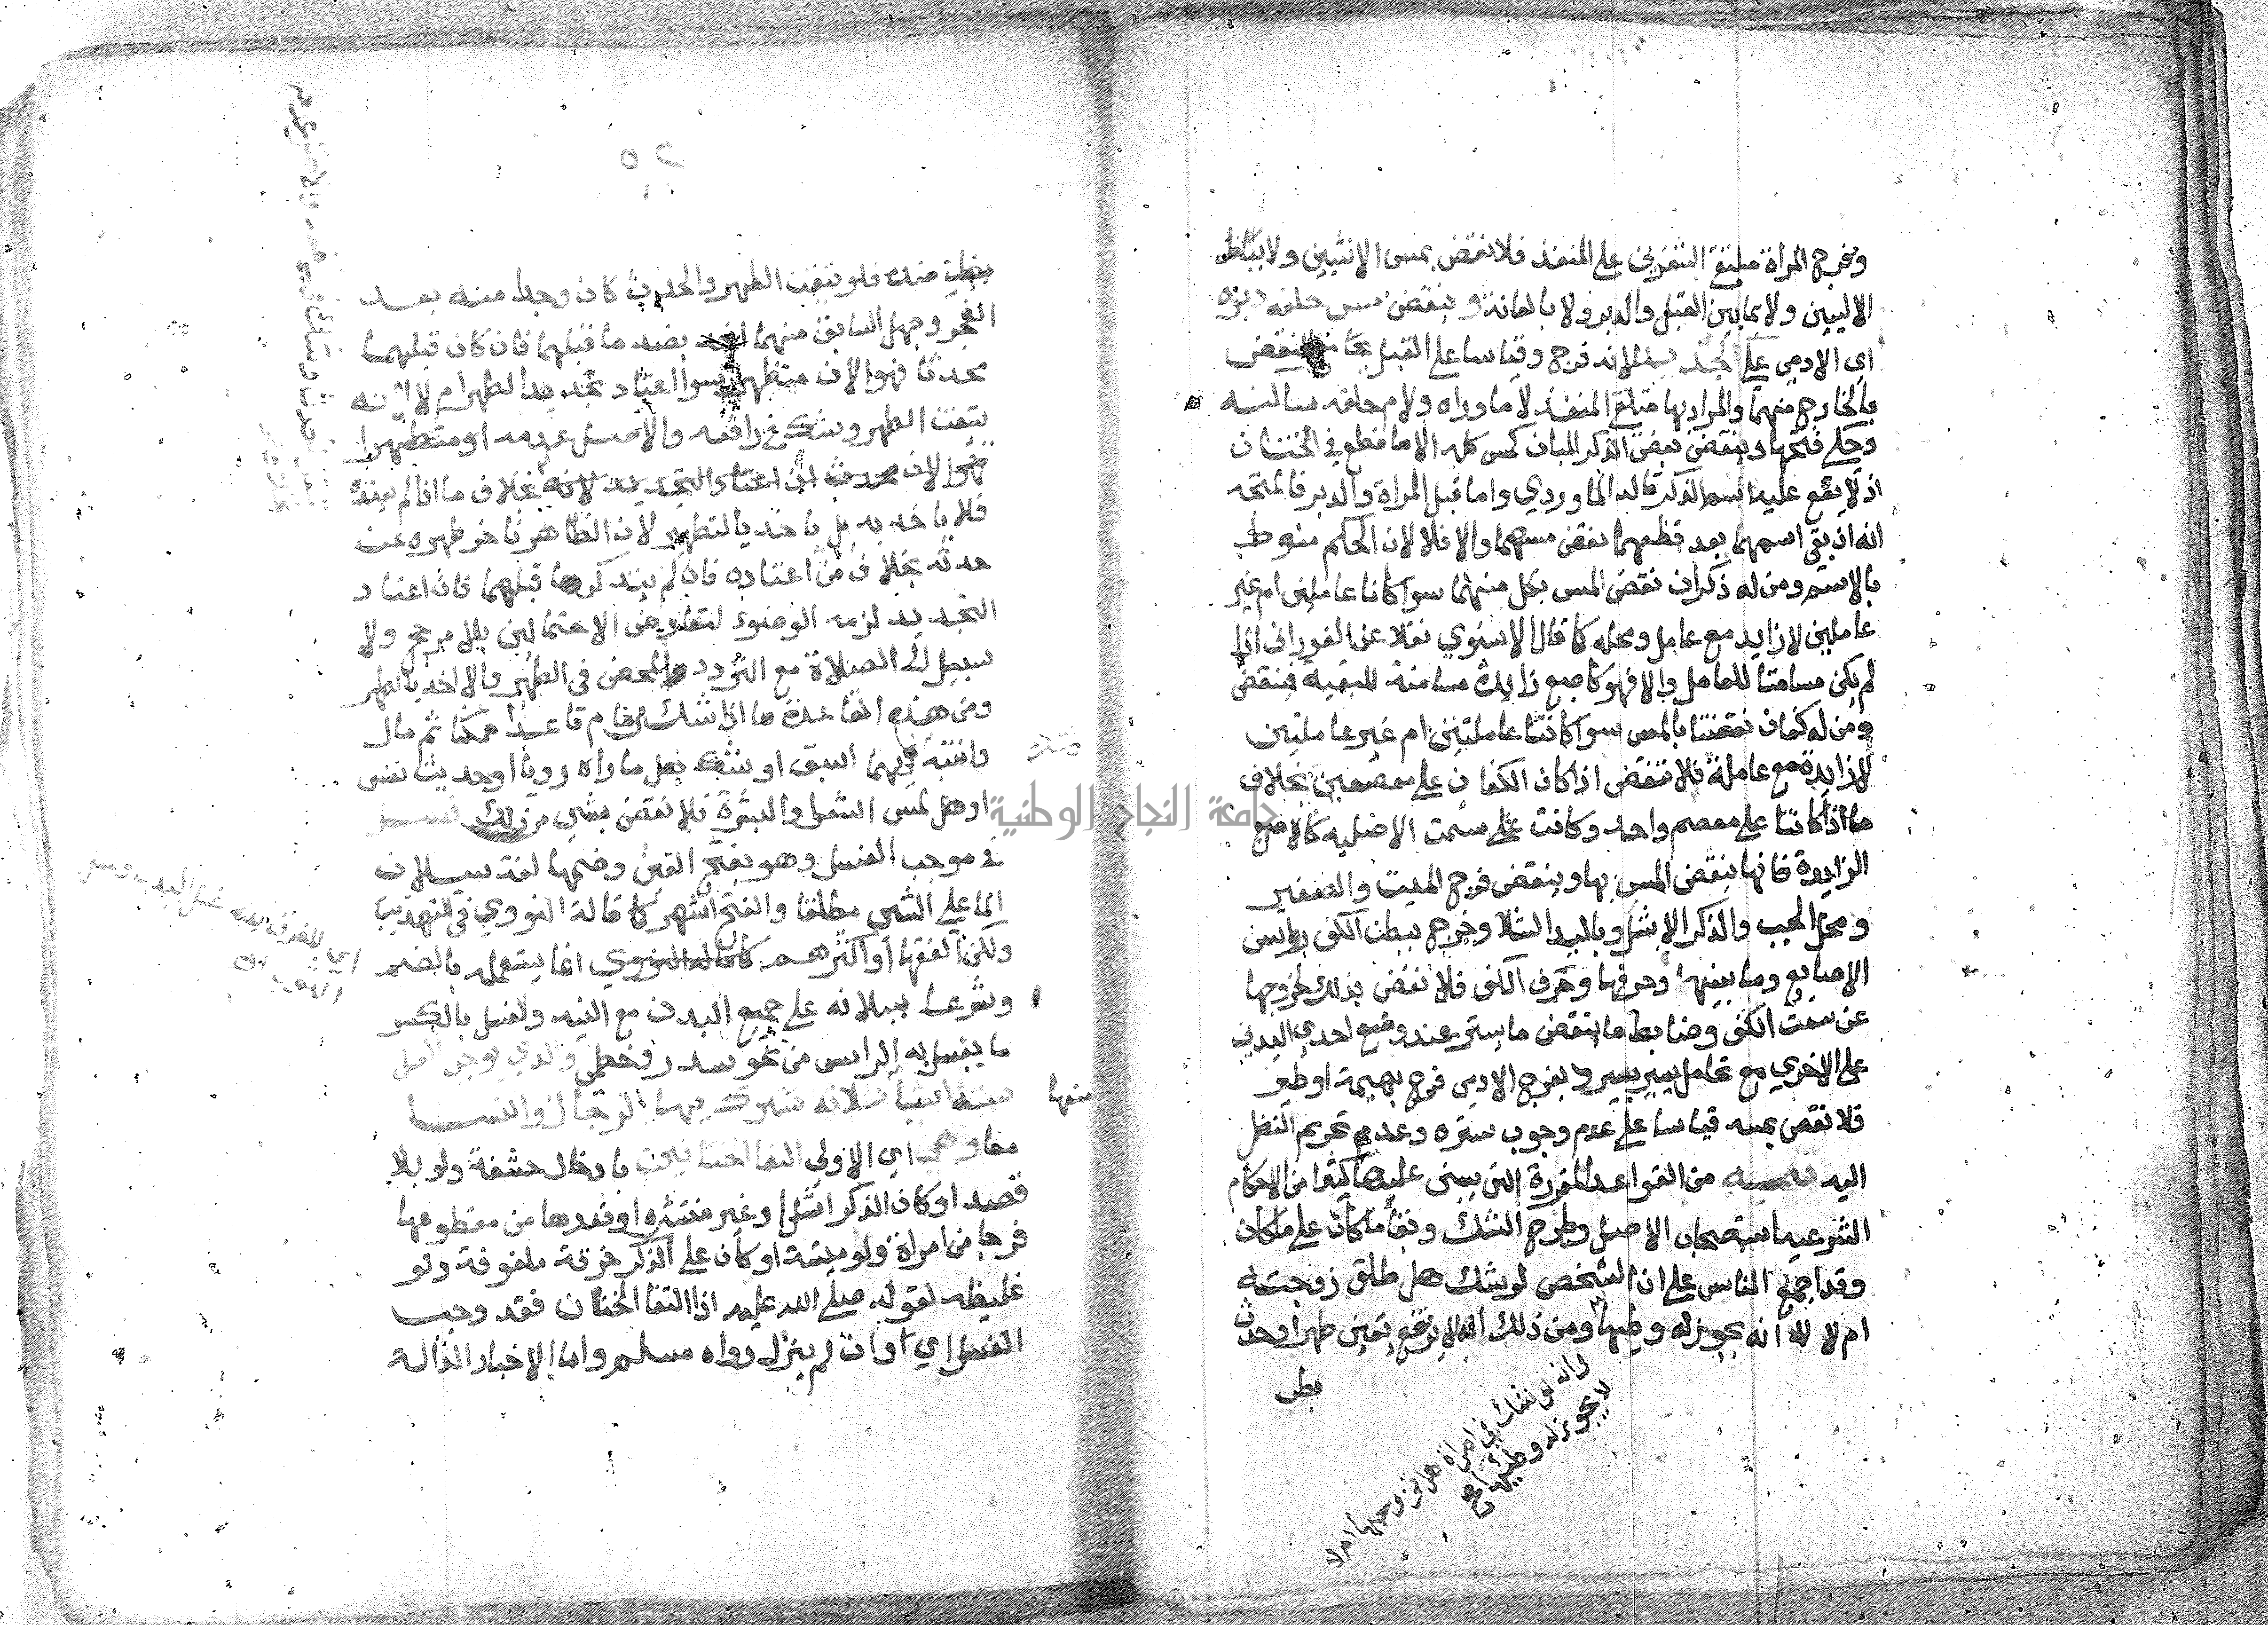 وبفرج المراة ملتقى الشفرين على المنفذ فلا نقض بمس الانثيين ولا بباطن
الاليين ولا بما بين القبل والدبر ولا بالعانة وينقض مس حلقة دبره
اي الادمي على الجديد لانه فرج وقياسا على القبل بجامع النقض
بالخارج منهما والمراد بها ملتقى المنفذ لا ما وراه ولام حلقه ساكنه
وحكي فتحها وينقض بعض الذكر المبان كمس كله الا ما قطع في الختان
اذ لا يقع عليه اسم الذكر قاله الماوردي واما قبل المراة والدبر فالمتجه
انه ان بقي اسمهما بعد قطعهما نقض مسهما والا فلا لان الحكم منوط
بالاسم ومن له ذكران نقض المس بكل منهما سوا كانا عاملين ام غير
عاملين لا زايد مع عامل ومحله كما قال الاسنوي نقلا عن الفوراني اذا
لم يكن مسامتا للعامل والا فهو كاصبع زايدة مسامتة للبقية فينقض
ومن له كفان نقضتا بالمس سوا كانتا عاملتين ام غير عاملتين
لا زايدة مع عاملة فلا تنقض اذا كان الكفان على معصمين بخلاف
ما اذا كانتا على معصم واحد وكانت على سمت الاصليه كالاصبع
الزايدة فانها ينقض المس بها وينقض فرج الميت والصغير
ومحل الجب والذكر الاشل وباليد الشلا وخرج ببطن الكف رؤس
الاصابع وما بينها وحرفها وحرف الكف فلا نقض بذلك لخروجها
عن سمت الكف وضابط ما ينقض ما يستر عند وضع احدي اليدين
على الاخري مع تحامل يسير وبفرج الادمي فرج بهيمة او طير
فلا نقض بمسه قياسا على عدم وجوب ستره وعدم تحريم النظر
اليه تنبيه من القواعد المقررة التي يبنى عليها كثير من الاحكام
الشرعيه استصحاب الاصل وطرح الشك وبقا ما كان على ما كان
وقد اجمع الناس على ان الشخص لو شك هل طلق زوجته
ام لا انه يجوز له وطيها ومن ذلك انه لا يرتفع يقين طهر او حدث
بظن
وانه لو شك في امراة هل تزوجها ام لا
لا يجوز له وطيها
٥٢
بظن ضده فلو تيقن الطهر والحدث كان وجدا منه بعد
الفجر وجهل السابق منهما اخذ بضد ما قبلهما فان كان قبلهما
محدثا فهو الان متطهر سوا اعتاد تجديد الطهر ام لا لانه
تيقن الطهر وشك في رافعه والاصل عدمه او متطهرا
فهو الان محدث ان اعتاد التجديد لانه بخلاف ما اذا لم يعتده
فلا ياخذ به بل ياخذ بالتطهير لان الظاهر تاخر طهره عن
حدثه بخلاف من اعتاده فان لم يتذكر ما قبلهما فان اعتاد
التجديد لزمه الوضوء لتعارض الاحتمالين بلا مرجح ولا
سبيل الى الصلاة مع التردد المحض في الطهر والا اخذ بالطهر
ومن هذه القاعدة ما اذا شك من نام قاعدا ممكنا ثم مال
وانتبه ايهما اسبق او شك هل ما راه رويا او حديث نفس
او هل لمس الشعر او البشرة فلا نقض بشي من ذلك فصل
في موجب الغسل وهو بفتح الغين وضمها لغة سيلان
الما على الشي مطلقا والفتح اشهر كما قاله النووي في التهذيب
ولكن الفقها او اكثرهم كما قاله النووي انما يستعمله بالضم
وشرعا سيلانه على جميع البدن مع النيه والغسل بالكسر
ما يغسل به الراس من نحو سدر وخطمي والذي يوجب الغسل
ستة اشيا ثلاثه تشترك فيها الرجال والنسا
منها
معا وهي اي الاولى التقا الختانين بادخال حشفة ولو بلا
قصد او كان الذكر اشل او غير منتشر او قدرها من مقطوعها
فرجا من امراة ولو ميتة او كان على الذكر خرقة ملفوفة ولو
غليظه لقوله صلى الله عليه اذا التقا الختان فقد وجب
الغسل اي وان لم ينزل رواه مسلم واما الاخبار الدالة
جامعة النجاح الوطنية